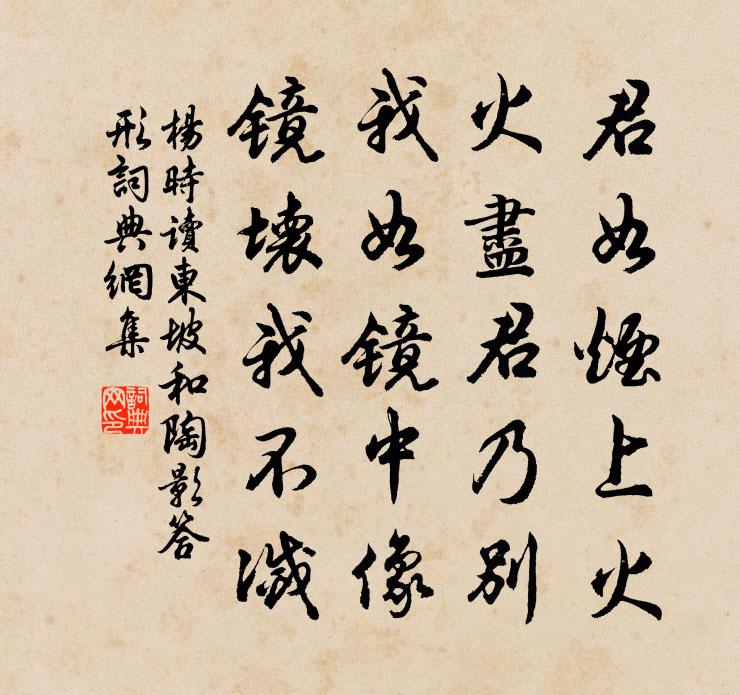 君如煙上火
火盡君乃別
我如鏡中像
鏡壊我不滅
楊時讀東坡和陶影答
形詞典網集
詞典
网印